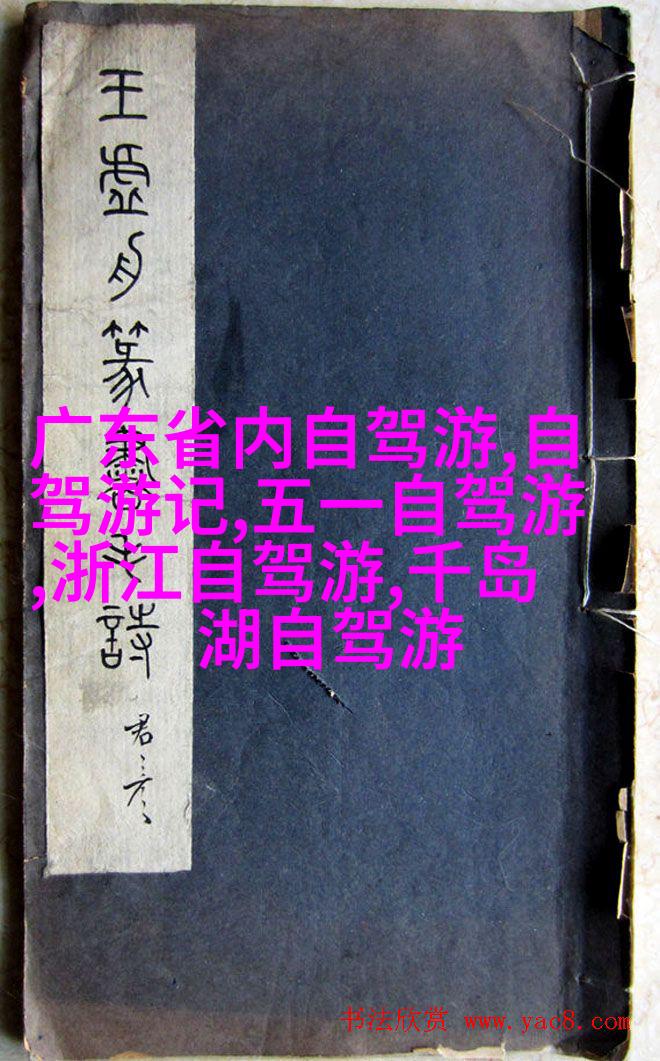 广东省内自驾游,自
驾游记,五一自驾游
,浙江自驾游,千岛
湖自驾游
王虚舟篆書
詩
书法欣赏 www.yac8.com